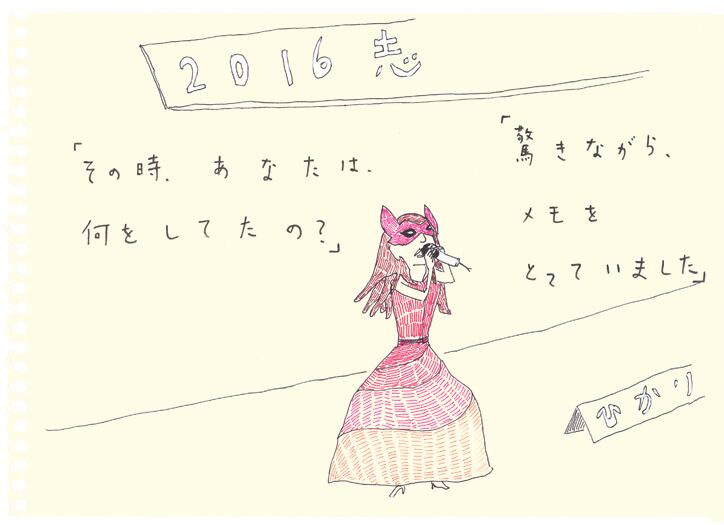 2016 志
「その時、あなたは、
何をしてたの?」
「驚きながら、
メモを
とっていました」
ひかり